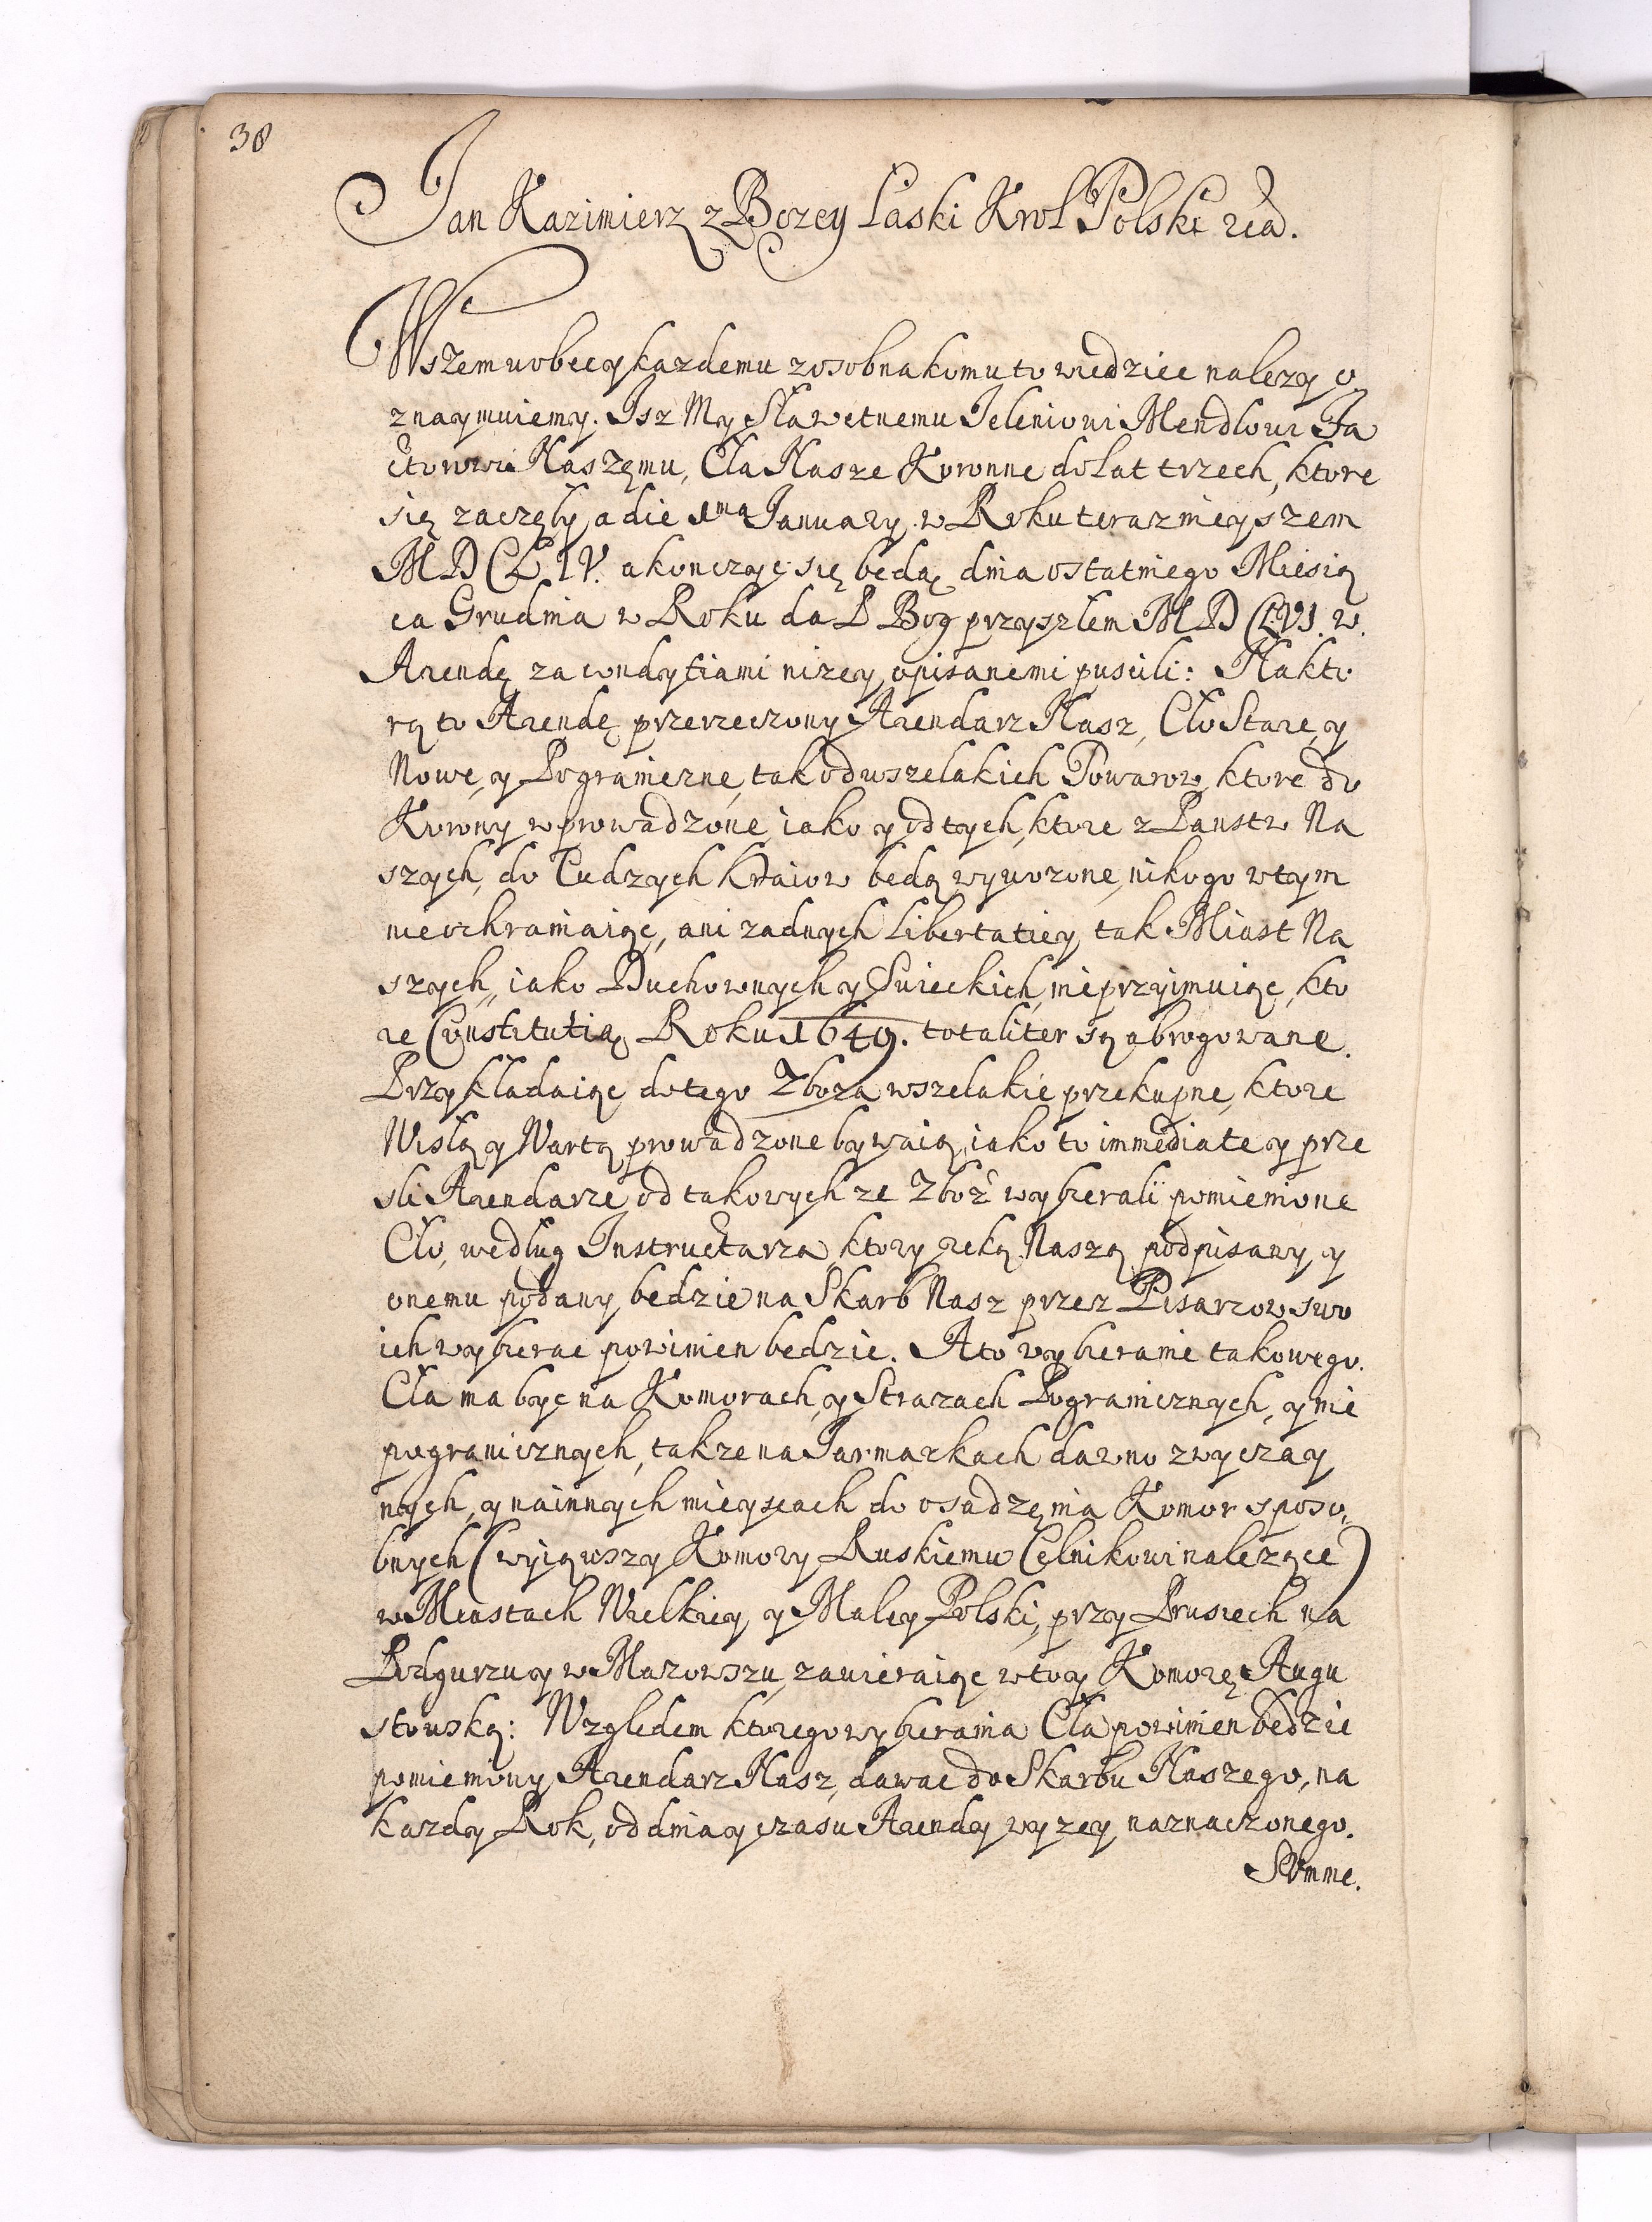 38
Jan Kazimierz z Bozey Łaski Krol Polski &c&.
Wszem wobec y kazdemu zosobna komu to wiedziec nalezy o
znaymuiemy. Isz My Sławetnemu Jeleniowi Mendlowi Fa
ctorowi Naszęmu, Cła Nasze Koronne do lat trzech, ktore
się zaczęły a die 1ma January w Roku terazmieyszem
MDCLIV. a konczyc się będą dnia ostatniego Miesią
ca Grudnia w Roku da P Bog przyszłem MDCLVI. w.
Arendę za condytiami nizey opisanemi puscili: Na kto
rą to Arendę przerzeczony Arendarz Nasz, Cło Stare, y
Nowe, y Pograniczne, tak od wszelakich Towarow, ktore do
Korony wprowadzone, iako y od tych, ktore z Panstw Na
szych, do Cudzych Kraiow będą wywozone, nikogo w tym
nieochraniaiąc, ani zadnych Libertatiey, tak Miast Na
szych, iako Duchownych y Swieckich, nieprzyimuiąc, kto
re Constitutią Roku 1649. totaliter są abrogowane.
Przykladaiąc do tego Zboza wszelakie przekupne, ktore
Wisłą y Wartą prowadzone bywaią, iako to immediate y prze
sli Arendarze, od takowych ze Zboż wybierali pomienione
Cło, według Instructarza, ktory ręką Naszą podpisany, y
onemu podany, bedzie na Skarb Nasz przez Pisarzow swo
ich wybierac powinien bedzie. A to wybieranie takowego.
Cła ma byc na Komorach, y Strazach Pogranicznych, y nie
pogranicznych, takze na Jarmarkach dawno zwyczay
nych, y na innych mieyscach do osadzęnia Komor sposo,
bnych (wyiąwszy Komory Ruskiemu Celnikowi nalezące)
w Miastach Wielkiey, y Małey Polski, przy Prusiech na
Podgurzu y w Mazowszu, zawieraiąc w toy Komorę Augu
stowską: Względem ktorego wybierania Cła powinien będzie
pomieniony Arendarz Nasz, dawac do Skarbu Naszego, na
kazdy Rok, od dnia y czasu Arendy wyzey naznaczonego.
SVmme.